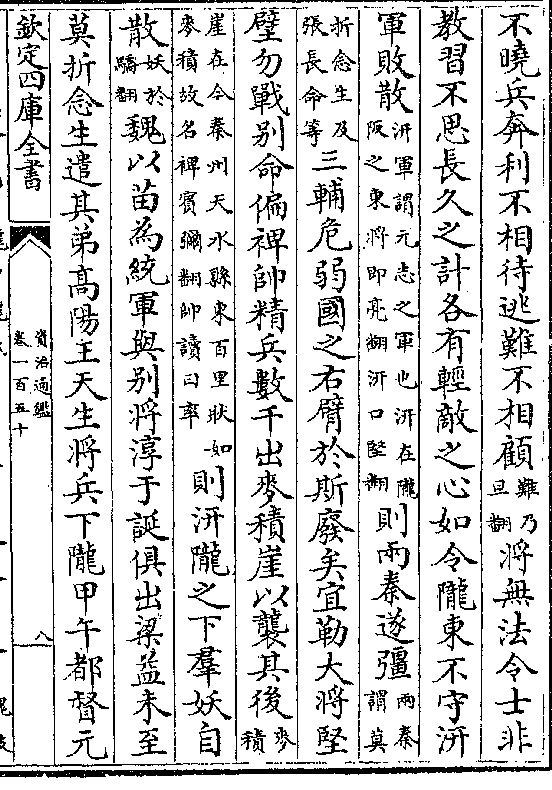 不曉兵奔利不相待逃難不相顧難乃旦翻將無法令士非
教習不思長久之計各有輕敵之心如令隴東不守汧
軍敗散汧軍謂元志之軍也汧在隴阪之東將即亮翻汧口堅翻則兩秦遂彊兩秦謂莫
折念生及張長命等三輔危弱國之右臂於斯廢矣宜勒大將堅
壁勿戰别命偏裨帥精兵數千出麥積崖以襲其後麥積
崖在今秦州天水縣東百里狀如麥積故名裨賓彌翻帥讀曰率則汧隴之下羣妖自
散妖於驕翻魏以苗為統軍與别將淳于誕俱出梁益未至
莫折念生遣其弟高陽王天生將兵下隴甲午都督元
欽定四庫全書
資治通鑑
卷一百五十
八